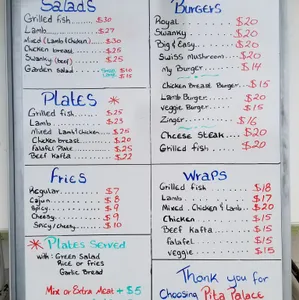 Salads
Grilled fish.... $30
Lamb........ $27
Mixed (Lamb/Chicken).... $30
Chicken breast.... $25
Swanky (beef).... $25
Garden Salad
$10
$15
Plates *
Grilled fish..... $25
Lamb...... $23
Mixed Lamb/Chicken.... $25
Chicken Breast.... $20
Falafel Plate.... $25
Beef Kafta...... $22
Fries
Regular...... $7
Cajun...... $8
Spicy...... $9
Cheesy...... $9
Spicy/Cheesy.... $10
* Plates Served
with: Green Salad
Rice or Fries
Garlic Bread
Mix or Extra Meat + $5
Burgers
Royal....... $20
Swanky...... $20
Big & Easy..... $20
Swiss Mushroom.... $20
My Burger..... $14
Chicken Breast Burger.... $15
Lamb Burger..... $20
Veggie Burger.... $15
Zinger...... $16
Cheese Steak.... $20
Grilled fish.... $20
Wraps
Grilled fish..... $18
Lamb........ $17
Mixed.. Chicken & Lamb.. $20
Chicken...... $15
Beef Kafta.... $15
Falafel...... $15
Veggie...... $15
Thank you for
Choosing Pita Palace